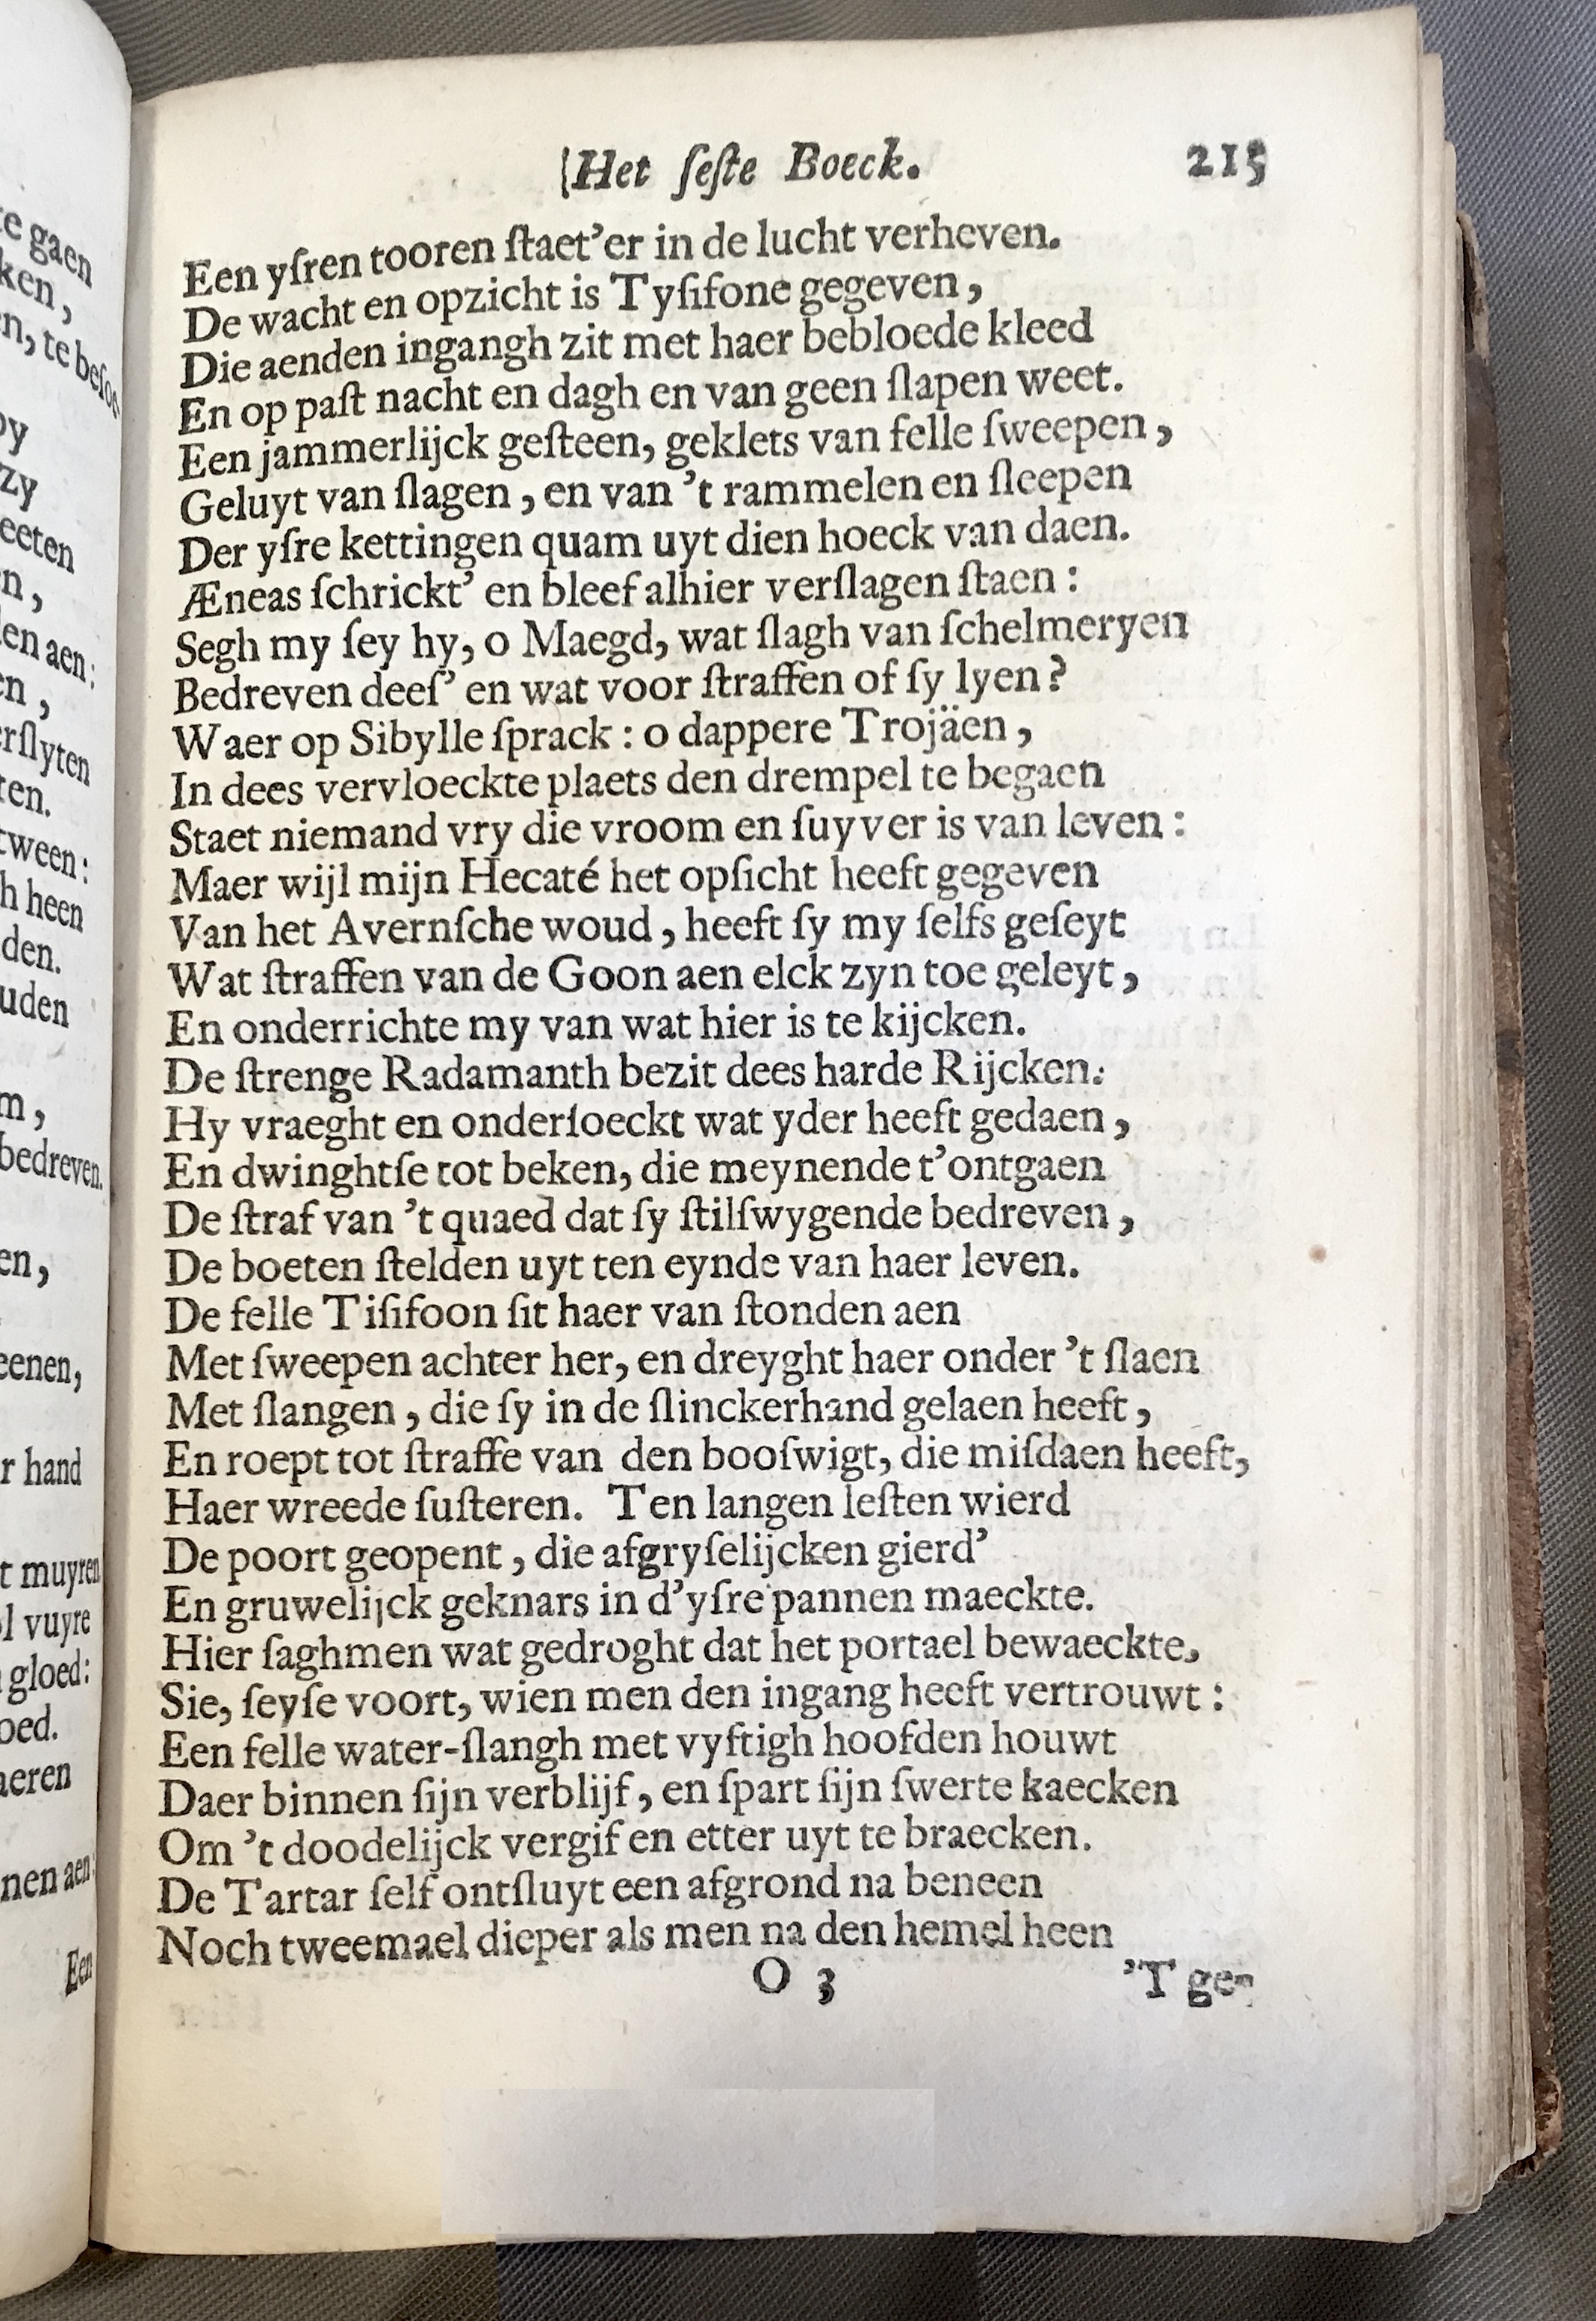 Het ſeſte Boeck. 215
Een yſren tooren ſtaet’er in de lucht verheven.
De wacht en opzicht is Tyſifone gegeven,
Die aenden ingangh zit met haer bebloede kleed
En op paſt nacht en dagh en van geen ſlapen weet.
Een jammerlijck geſteen, geklets van felle ſweepen,
Geluyt van ſlagen, en van ’t rammelen en ſleepen
Der yſre kettingen quam uyt dien hoeck van daen.
Æneas ſchrickt’ en bleef alhier verſlagen ſtaen:
Segh my ſey hy, o Maegd, wat ſlagh van ſchelmeryen
Bedreven deeſ’ en wat voor ſtraffen of ſy lyen?
Waer op Sibylle ſprack: o dappere Trojäen,
In dees vervloeckte plaets den drempel te begaen
Staet niemand vry die vroom en ſuyver is van leven:
Maer wijl mijn Hecaté het opſicht heeft gegeven
Van het Avernſche woud, heeft ſy my ſelfs geſeyt
Wat ſtraffen van de Goon aen elck zyn toe geleyt,
En onderrichte my van wat hier is te kijcken.
De ſtrenge Radamanth bezit dees harde Rijcken:
Hy vraeght en onderſoeckt wat yder heeft gedaen,
En dwinghtſe tot beken, die meynende t’ontgaen
De ſtraf van ’t quaed dat ſy ſtilſwygende bedreven,
De boeten ſtelden uyt ten eynde van haer leven.
De felle Tiſifoon ſit haer van ſtonden aen
Met ſweepen achter her, en dreyght haer onder ’t ſlaen
Met ſlangen, die ſy in de ſlinckerhand gelaen heeft,
En roept tot ſtraffe van den booſwigt, die miſdaen heeft,
Haer wreede ſuſteren. Ten langen leſten wierd
De poort geopent, die afgryſelijcken gierd’
En gruwelijck geknars in d’yſre pannen maeckte.
Hier ſaghmen wat gedroght dat het portael bewaeckte.
Sie, ſeyſe voort, wien men den ingang heeft vertrouwt:
Een felle water-ſlangh met vyftigh hoofden houwt
Daer binnen ſijn verblijf, en ſpart ſijn ſwerte kaecken
Om ’t doodelijck vergif en etter uyt te braecken.
De Tartar ſelf ontſluyt een afgrond na beneen
Noch tweemael dieper als men na den hemel heen
O 3 ’T ge-